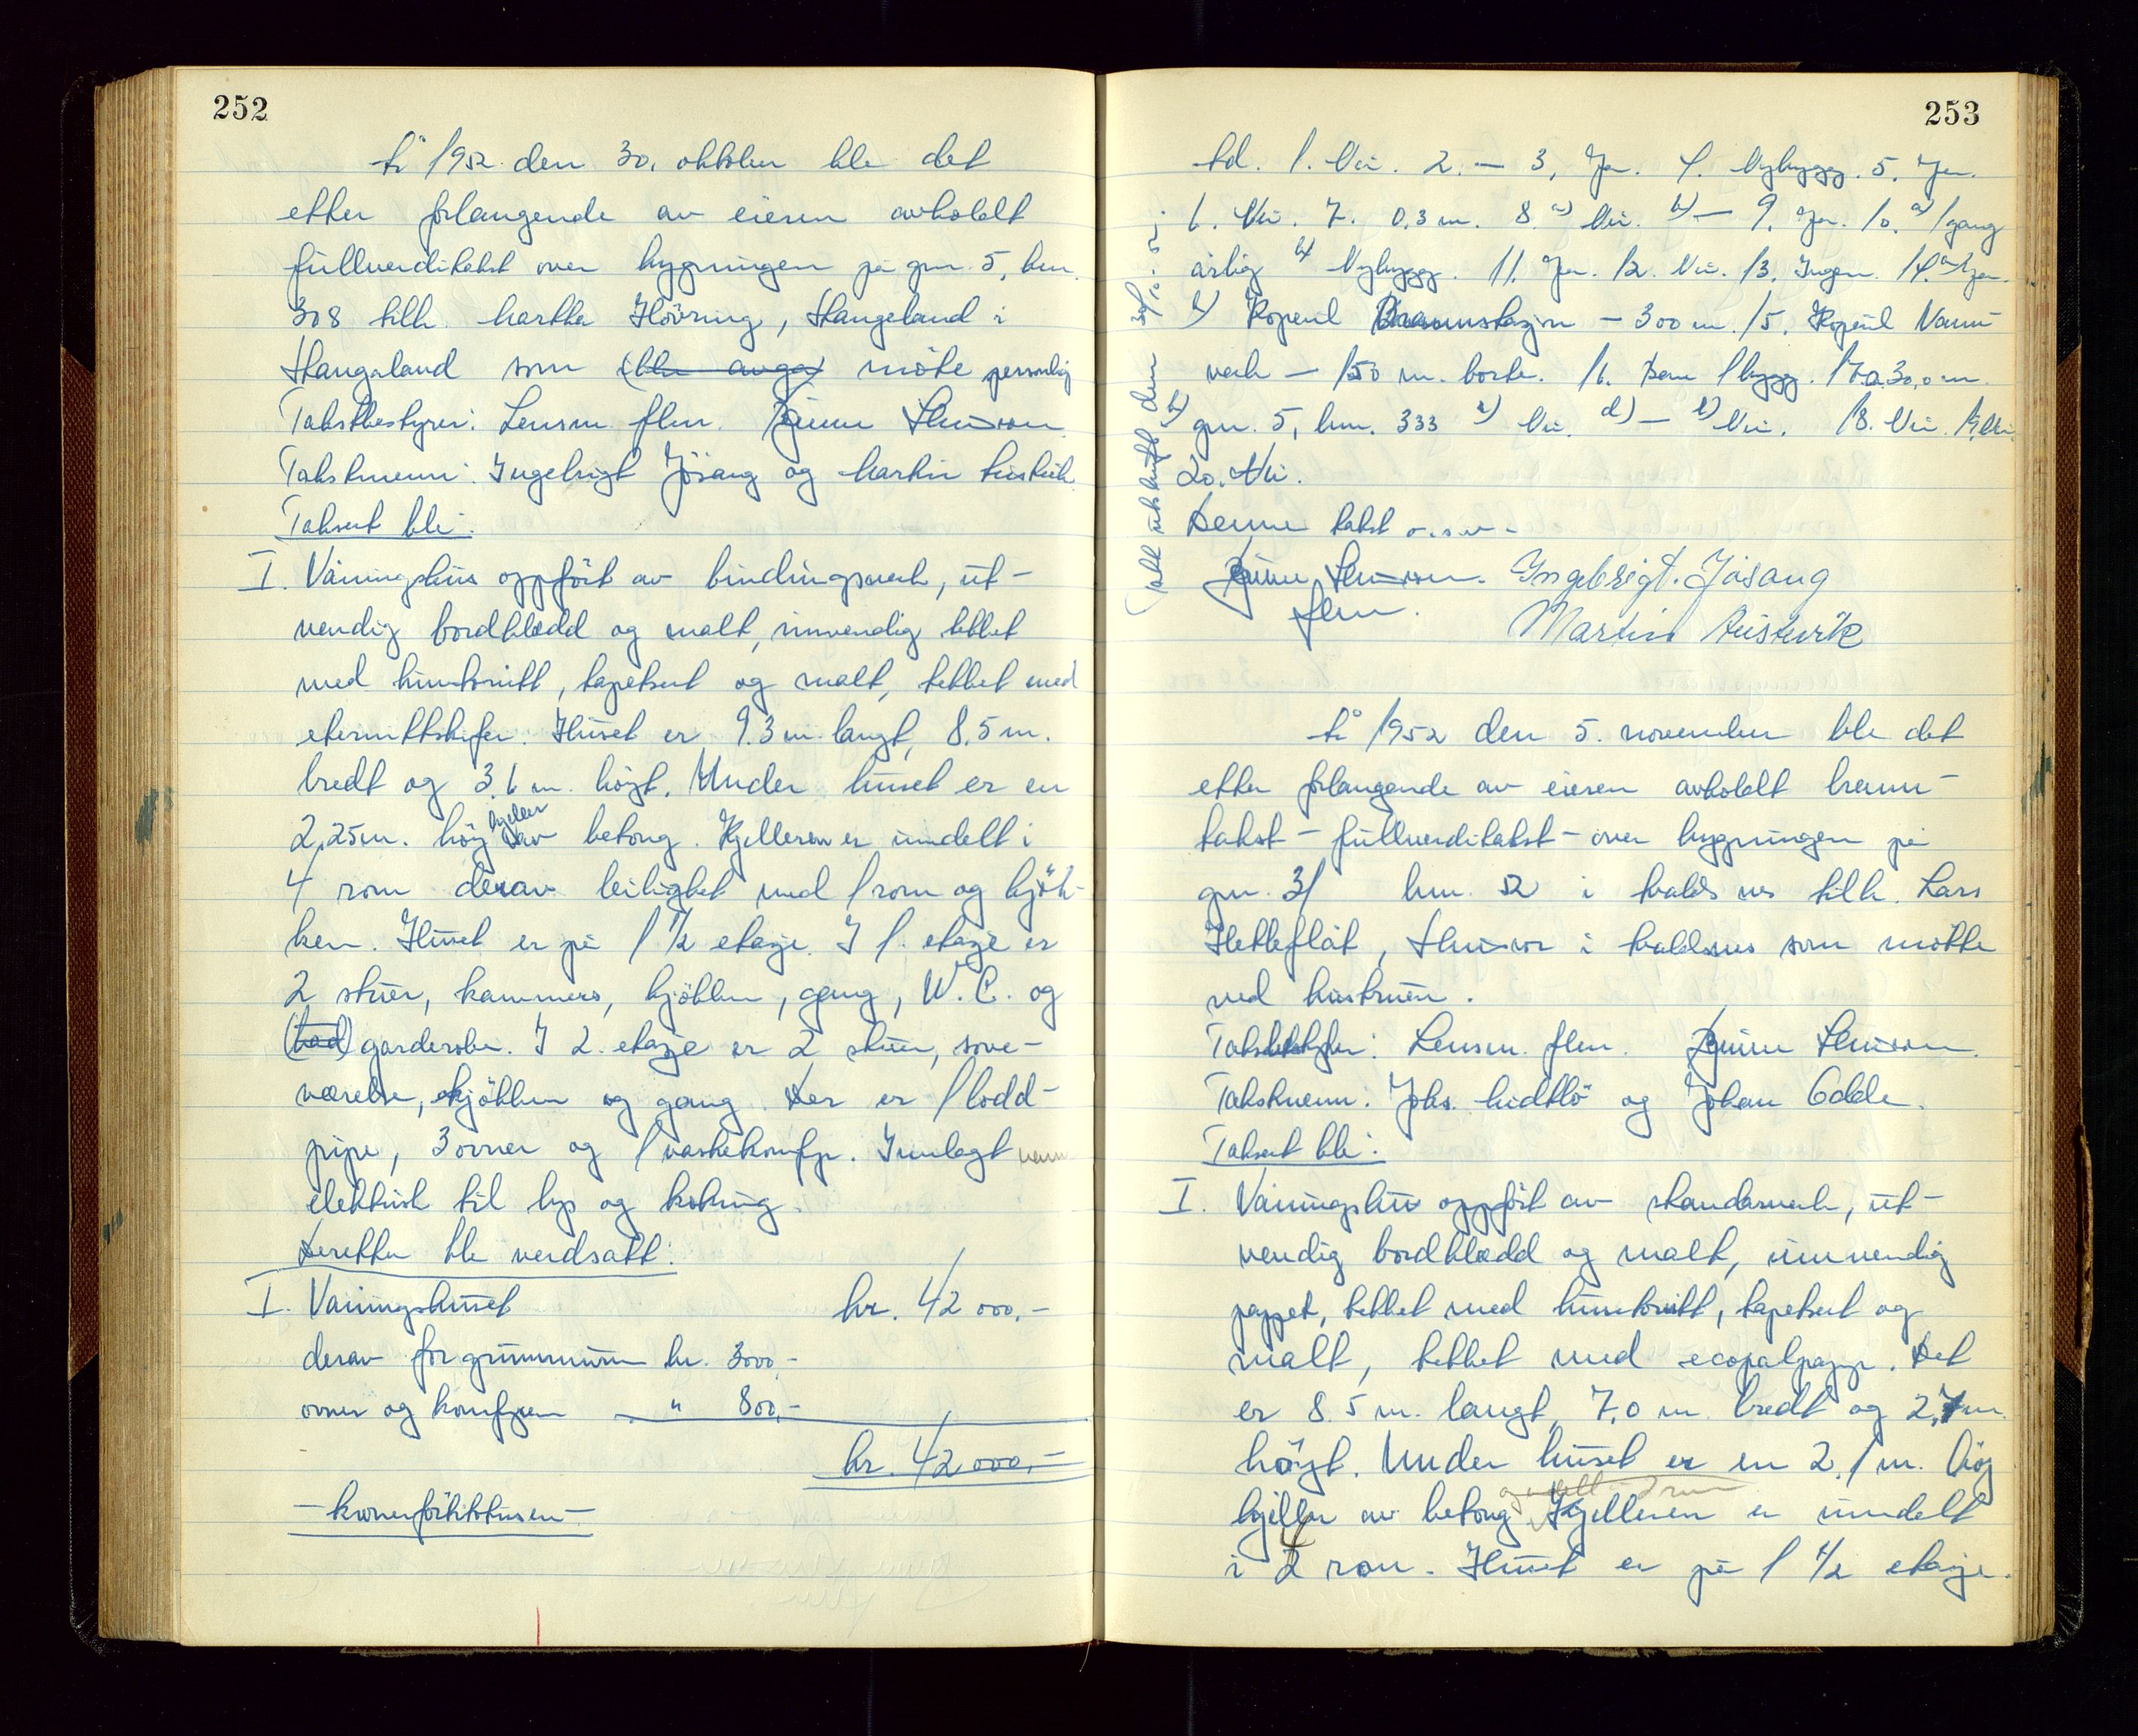 252
År 1952 den 30. oktober ble det
etter forlangende av eieren avholdt
fullverditakst over bygningen på gnr. 5, bnr.
308 tilh. Martha Hövring, Stangeland i
Stangaland som (ble avga) møte personlig
Takstbestyrer: Lensm. flm.
Takstmenn: Ingebrigt Jösang og Martin Austvik
Taksert ble:
I. Våningshus oppfört av bindingsverk, ut-
vendig bordkledd og malt, innvendig tekket
med huntonitt, tapetsert og malt, tekket med
eternittskifer. Huset er 9.3 m. langt, 8.5 m.
bredt og 3.6 m. högt. Under huset er en
2,25 m. höy kjeller av betong. Kjelleren er inndelt i
4 rom derav leilighet med 1 rom og kjök-
ken. Huset er på 1 1/2 etasje. I 1. etasje er
2 stuer, kammers, kjökken, gang, W.C. og
(bad) garderobe. I 2. etasje er 2 stuer, sove-
værelse, kjökken og gang. Der er 1 lodd-
pipe, 3 ovner og 1 vaskekomfyr. Innlagt vann
elektrisk til lys og koking.
Deretter ble verdsatt:
I. Våningshuset kr. 42 000,-
derav for grunnmuren kr. 3000,-
ovner og komfyren " 800,-
kr. 42 000,-
- kronerförtitotusen -
253
td. 1. Nei. 2. — 3. Ja. 4. Nybygg. 5. Ja.
6. Nei. 7. 0.3 m. 8. a) Nei. b) — 9. Ja. 10. a) 1 gang
årlig b) Nybygg. 11. Ja. 12. Nei. 13. Ingen. 14. a) Ja.
b) Kopervik Brannstasjon - 300 m. 15. Kopervik Vann-
verk - 150 m. borte. 16. Bare 1 bygg. 17. a. 30,0 m.
b) gnr. 5, bnr. 333 c) Nei. d) — e) Nei. 18. Nei. 19. Nei.
20. Nei.
Denne takst o.s.v.-
Takst utskrift den 30/10.52.
Ingebrigt. Jøsang
flm. Martin Austvik
År 1952 den 5. november ble det
etter forlangende av eieren avholdt brann-
takst - fullverditakst - over bygningen på
gnr. 31 bnr. 52 i Avaldsnes tilh. Lars
Hetteflåt, i Avaldsnes som møtte
ved hustruen.
Takstbestyrer: Lensm. flm.
Takstmenn: Johs. Midtbö og Johan Odde.
Taksert ble:
I. Våningshus oppfört av standarverk, ut-
vendig bordkledd og malt, innvendig
pappet, tekket med huntonitt, tapetsert og
malt, tekket med ecopalpapp. Det
er 8.5 m. langt, 7.0 m. bredt og 2.7 m.
høgt. Under huset er en 2.1 m. hög
kjeller av betong. Kjelleren er inndelt
i 4 rom. Huset er på 1 1/2 etasje.